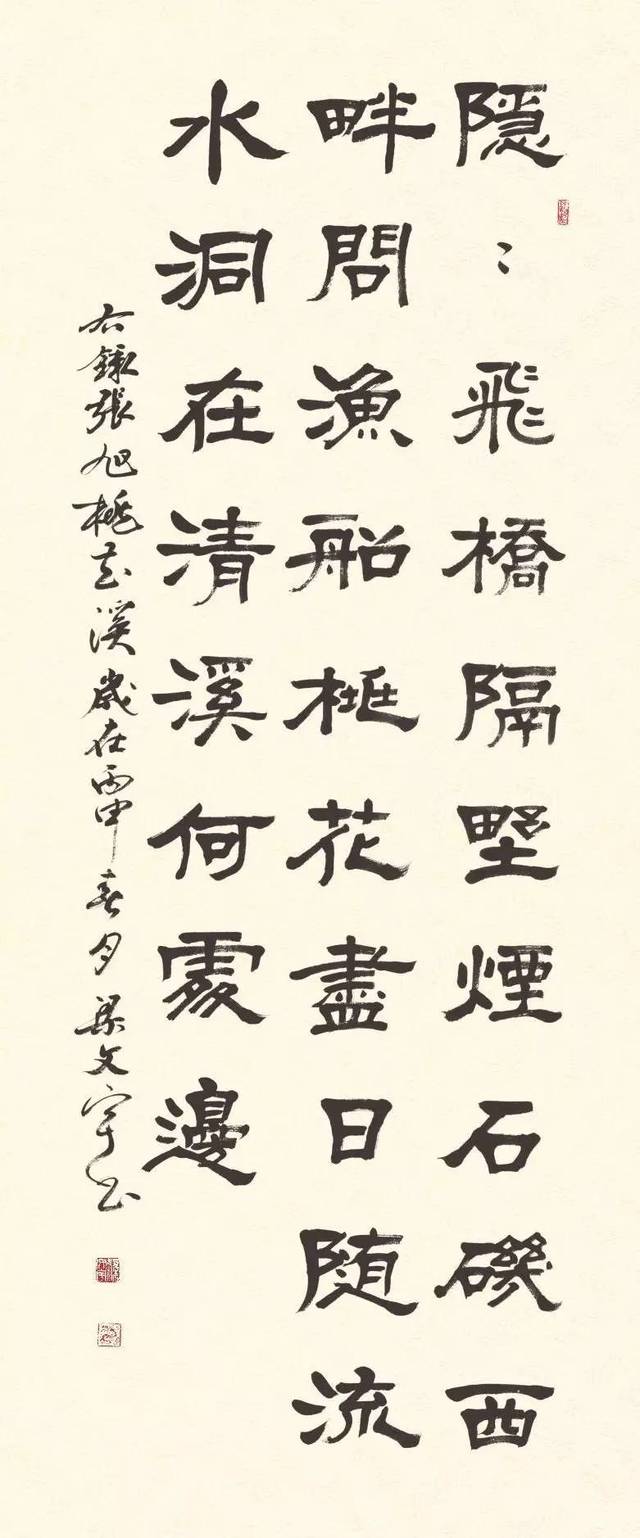 隱〻飛橋隔野煙石磯西
畔問漁船桃花盡日随流
水洞在清溪何處邊
右錄張旭桃花溪歲在丙申春月梁文宇书